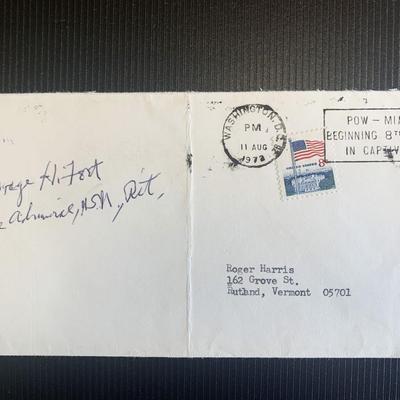 orge H. Fort
Admiral, USN, Ret.
WASHINGTON, D.C.
PM
11 AUG
1972
POW – MIA
BEGINNING 8TH
IN CAPTIV
8c
Roger Harris
162 Grove St.
Rutland, Vermont 05701